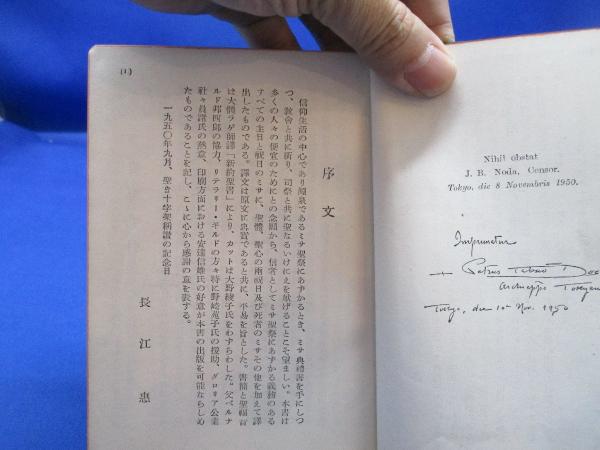 Nihil obstat
J. B. Noda, Censor.
Tokyo, die 8 Novembris 1950.
Imprimatur
+ Petrus Tatsuo Doi
Tokyo, die 10 Nov. 1950
序文
信仰生活の中心であり源泉であるミサ聖祭にあずかるとき、ミサ典禮書を手にしつ
つ、教会と共に祈り、司祭と共に聖なるいけにえを献げることこそ望ましい。本書は
多くの人々の便宜のためにとの念願から、信者としてミサ聖祭にあずかる義務のある
すべての主日と祝日のミサに、聖體、聖心の兩祝日及び死者のミサその他を加えて譯
出したものである。譯文は原文に忠實であると共に、平易を旨とした。書簡と聖福音
は大僧ラゲ師譯「新約聖書」により、カットは大野綾子氏をわずらわした。父ベルナ
ルド邦四郎の協力、リテラリー・ギルドの方々特に野崎苑子氏の援助、グロリア公業
社々員諸氏の熱意、印刷方面における安達信雄氏の好意が本書の出版を可能ならしめ
たものであることを記し、こゝに心から感謝の意を表する。
一九五〇年九月、聖き十字架稱讃の記念日
長江惠
(1)